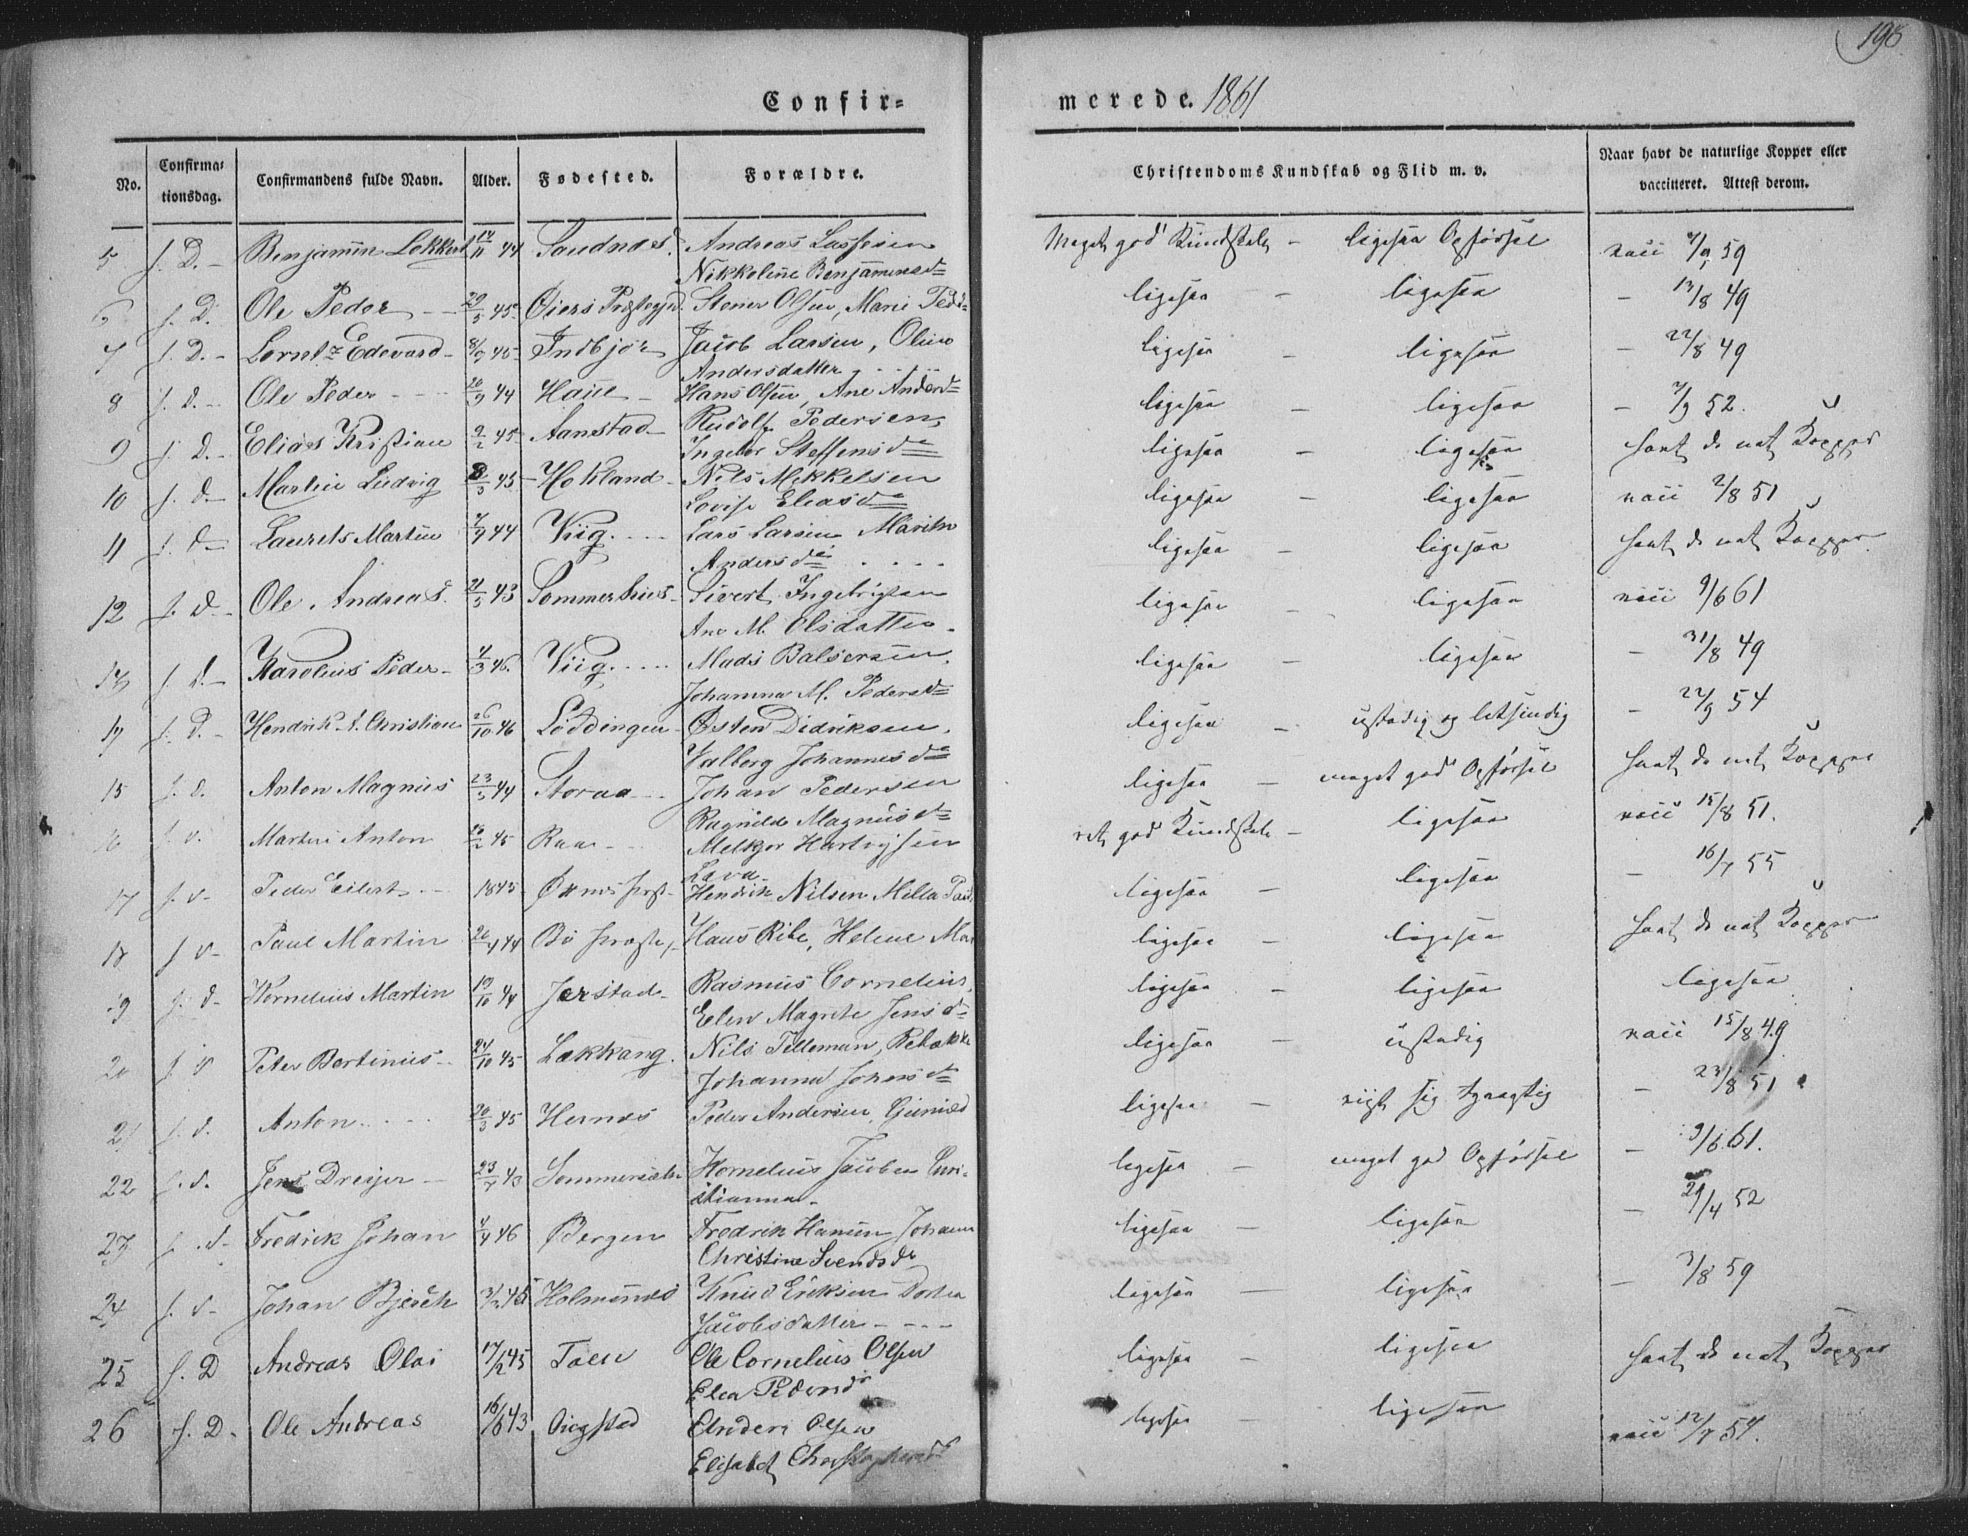 198
Confir=
merede. 1861
No.
Confirma=
tionsdag.
Confirmandens fulde Navn.
Alder.
Fødested.
Forældre.
Christendoms Kundskab og Flid m. v.
Naar havt de naturlige Kopper eller
vaccineret. Attest derom.
5 f. D. Benjamin Lekkert 44 Sandnæs Andreas Lassesen Meget god Kundskab – ligesaa Opførsel vacc 59
Nikkoline Benjaminsd
6 f. D. Ole Peder 29/5 45 Øiers Præstegjd Stener Olsen, Marie Pedd ligesaa – ligesaa – 13/8 49
7 f. D. Lorntz Edevard 8/9 45 Indbjør Jacob Larsen, Oline ligesaa – ligesaa – 22/8 49
Andersdatter
8 f. D. Ole Peder 20/9 44 Haue Hans Olsen, Ane Andersd ligesaa – ligesaa – 7/9 52.
9 f. D. Elias Kristian 2/2 45 Aanstad Rudolf Pedersen, ligesaa – ligesaa havt de nat Kopper
Ingebor Steffensd
10 f. D. Martin Ludvig 8/3 45 Hokland Nils Mikkelsen ligesaa – ligesaa vacc 2/8 51
Lovise Eliasd
11 f. D. Laurits Martin 4/9 44 Viig Lars Larsen Marith ligesaa – ligesaa havt de nat Kopper
Andersd
12 f. D. Ole Andreas 21/5 43 Sommerhuus Sivert Ingebrigtsen ligesaa – ligesaa vacc 9/6 61
Ane M. Olsdatter
13 f. D. Karolius Peder 4/3 46 Viig Mads Balsersen ligesaa – ligesaa – 31/8 49
Johanna M. Pedersd
14 f. D. Hendrik A. Christian 26/10 46 Løddingen Østen Didriksen ligesaa – ustadig og letsindig – 22/9 54
Valberg Johannesd
15 f. D. Anton Magnus 23/5 44 Storaa Johan Pedersen ligesaa – meget god Opførsel havt de nat Kopper
Ragnilde Magnusd
16 f. D. Martin Anton 45 Raa Melkjor Hartvigsen ret god Kundskab – ligesaa vacc 15/8 51.
Lava
17 f. D. Peder Eilert 1845 Øxnes Præst Hendrik Nilsen Mella ligesaa – ligesaa – 16/7 55
18 f. D. Paul Martin 20/4 44 Bø Præste Hans Ribe, Helene ligesaa – ligesaa havt de nat Kopper
19 f. D. Kornelius Martin 19/10 44 Jerstad Rasmus Cornelius, ligesaa – ligesaa ligesaa
Elen Magrete Jensd
20 f. D. Peter Bertinus 24/10 45 Lækkang Nils Tilleman, Rebække ligesaa – ustadig vacc 15/8 49
Johanna Johnsd
21 f. D. Anton 20/3 45 Hernes Peder Andersen, Gunild ligesaa – viist sig – 23/8 51
22 f. D. Jens Dreyer 23/7 43 Kornelius Jacobsen Chri- ligesaa – meget god Opførsel – 9/6 61.
stianna
23 f. D. Fredrik Johan 4/4 46 Bergen Fredrik Hansen Johann ligesaa – ligesaa – 29/4 52
Christine Svendsd
24 f. D. Johan Bjerch 45 Holmenes Knud Eriksen Dortea ligesaa – ligesaa – 3/8 59
Jacobsdatter
25 f. D Andreas Olai 17/12 45 Taen Ole Cornelius Olsen ligesaa – ligesaa havt de nat Kopper
Elen Pedersd
26 f. D. Ole Andreas 16/6 43 Qvigstad Olsen ligesaa – ligesaa vacc 12/7 54.
Elisabet